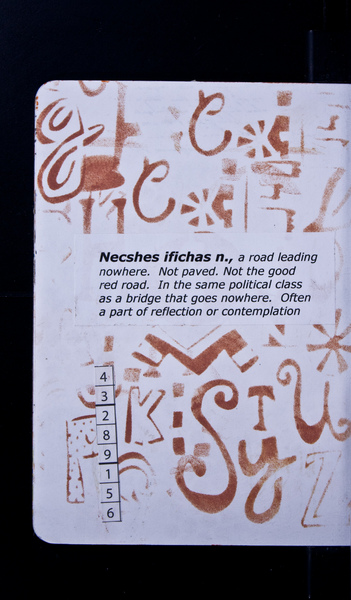 Necshes ifichas n., a road leading
nowhere. Not paved. Not the good
red road. In the same political class
as a bridge that goes nowhere. Often
a part of reflection or contemplation
4
3
2
8
9
1
5
6